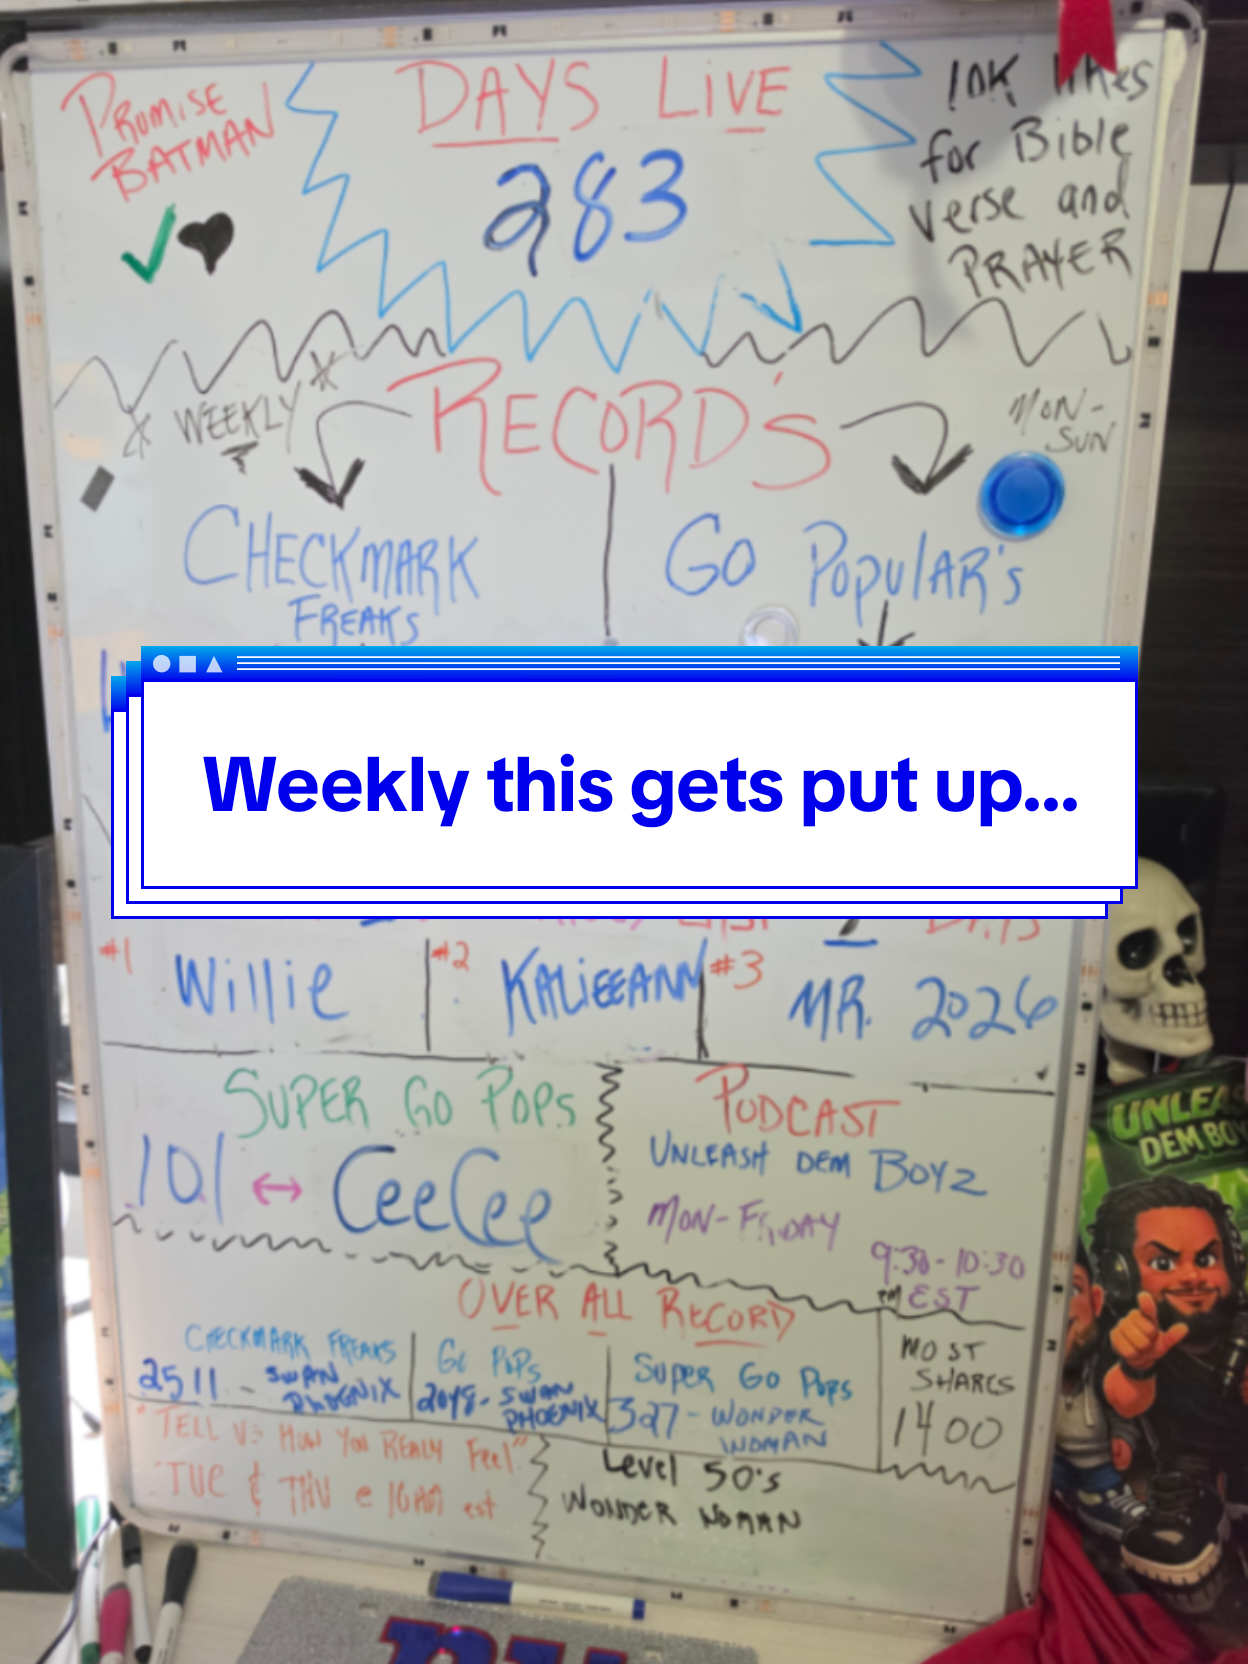 PROMISE
BATMAN
DAYS LIVE
283
10K likes
for Bible
verse and
PRAYER
WEEKLY
RECORD's
MON-
SUN
CHECKMARK
FREAKS
GO POPULAR's
Weekly this gets put up...
#1 Willie
#2 KALIEEANN
#3 MR. 2026
SUPER GO POPS
101 ↔ CeeCee
PODCAST
UNLEASH DEM BOYZ
MON-FRIDAY
9:30-10:30
PM EST
UNLEA
DEM BOY
OVER ALL RECORD
CHECKMARK FREAKS
2511 - SWAN
PHOENIX
GO POPS
2048- SWAN
PHOENIX
SUPER GO POPS
327 - WONDER
WOMAN
MOST
SHARES
1400
"TELL US HOW YOU REALLY Feel"
TUE & THU @ 10AM est
Level 50's
WONDER WOMAN